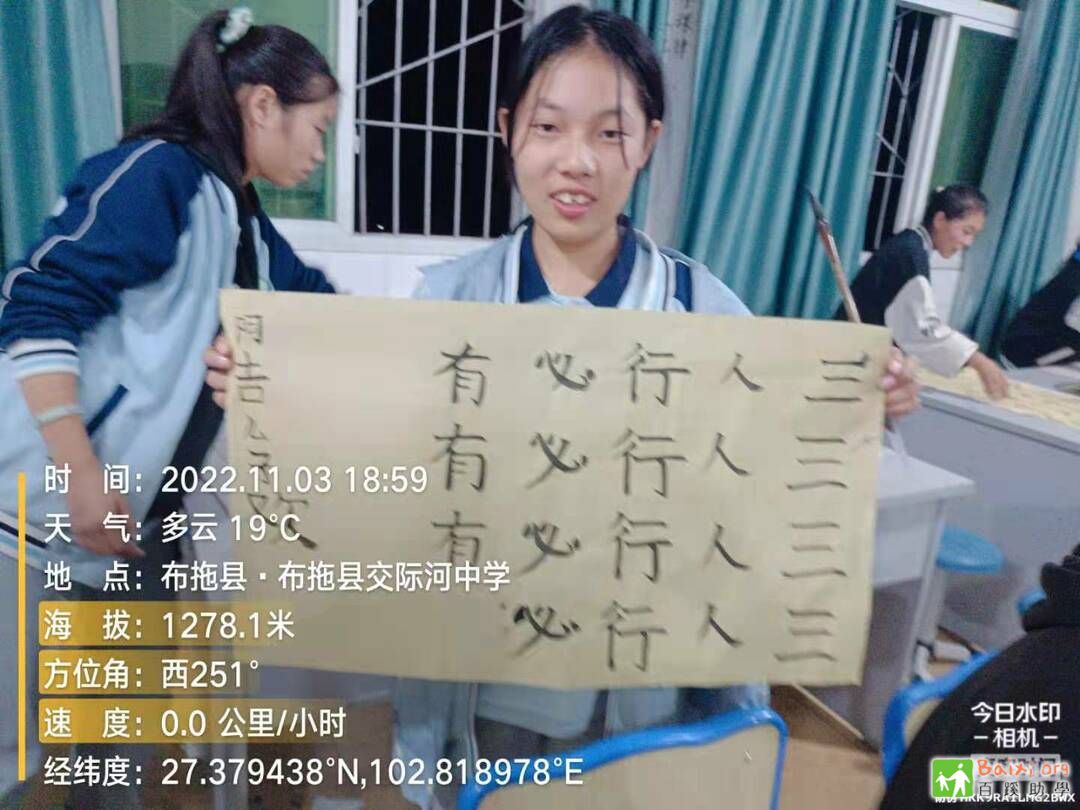 三三三三
人人人人
行行行行
必必必必
有有有
阿吉么
时 间：2022.11.03 18:59
天 气：多云 19℃
地 点：布拖县·布拖县交际河中学
海 拔：1278.1米
方位角：西251°
速 度：0.0 公里/小时
经纬度：27.379438°N,102.818978°E
今日水印
-相机-
Baixi.org
百蹊助學